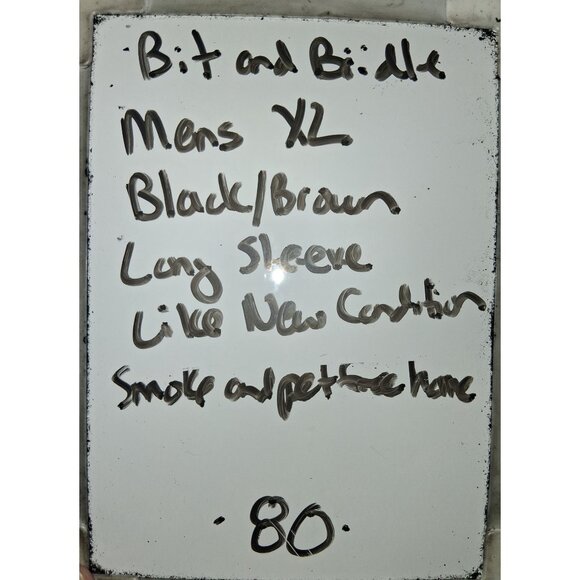 Bit and Bridle
Mens XL
Black/Brown
Long Sleeve
Like New Condition
Smoke and pet free home
80